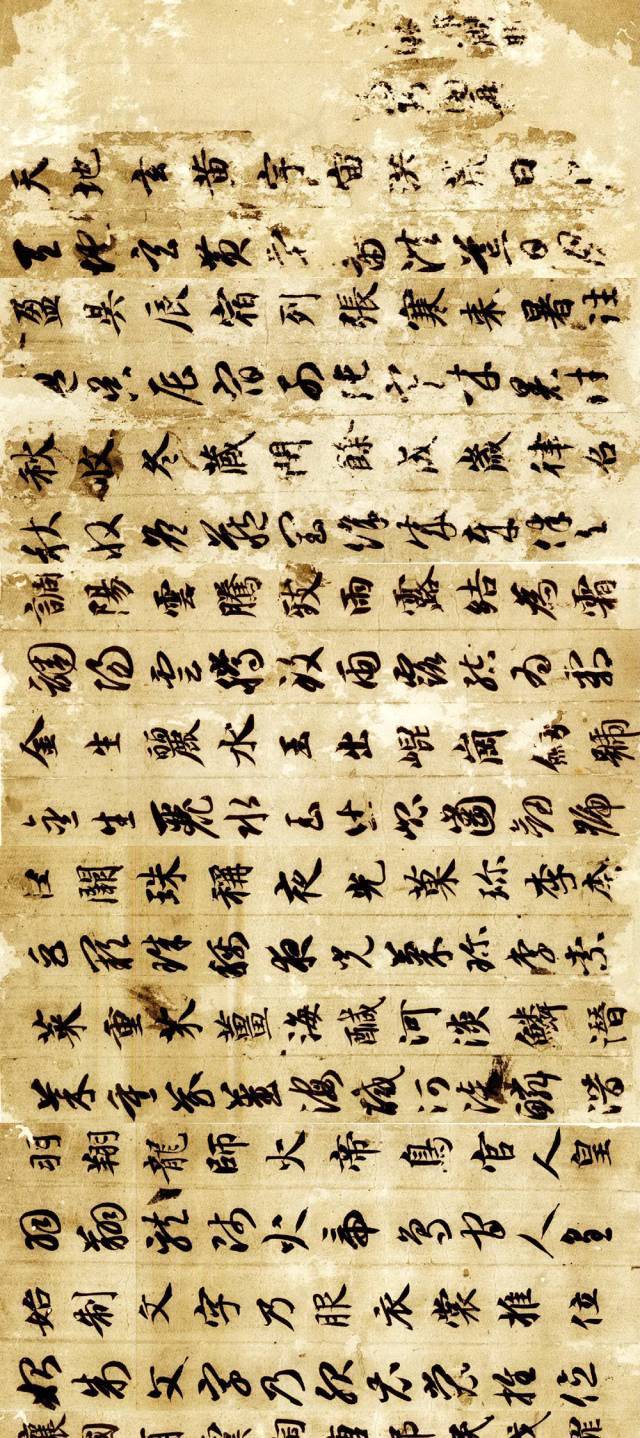 天地玄黃宇宙洪荒日月
天地玄黃宇宙洪荒日月
盈昃辰宿列張寒來暑往
盈昃辰宿列張寒來暑往
秋收冬藏閏餘成歲律呂
秋收冬藏閏餘成歲律呂
調陽雲騰致雨露結為霜
調陽雲騰致雨露結為霜
金生麗水玉出崐崗劍號
金生麗水玉出崐崗劍號
巨闕珠稱夜光菓珎李柰
巨闕珠稱夜光菓珎李柰
菜重芥薑海鹹河淡鱗潛
菜重芥薑海鹹河淡鱗潛
羽翔龍師火帝鳥官人皇
羽翔龍師火帝鳥官人皇
始制文字乃服衣裳推位
始制文字乃服衣裳推位